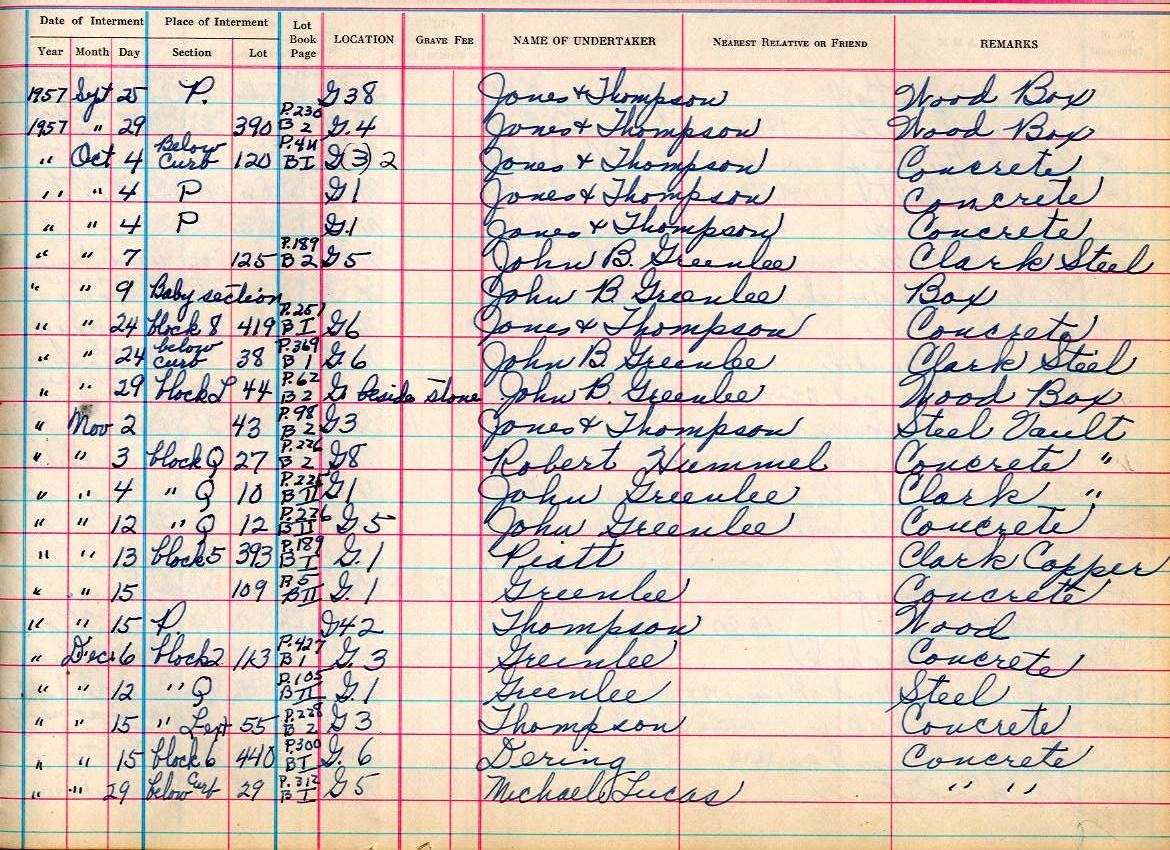 Date of Interment Place of Interment Lot Book Page LOCATION GRAVE FEE NAME OF UNDERTAKER NEAREST RELATIVE OR FRIEND REMARKS
Year Month Day Section Lot
1957 Sept 25 P. G38 Jones & Thompson Wood Box
1957 " 29 390 P.230 B 2 G.4 Jones & Thompson Wood Box
" Oct 4 Below Curb 120 P.411 B I G(3) 2 Jones & Thompson Concrete
" " 4 P G1 Jones & Thompson Concrete
" " 4 P G1 Jones & Thompson Concrete
" " 7 125 P.189 B 2 G5 John B. Greenlee Clark Steel
" " 9 Baby section John B Greenlee Box
" " 24 block 8 419 P.251 B I G6 Jones & Thompson Concrete
" " 24 below curb 38 P.369 B 1 G6 John B Greenlee Clark Steel
" " 29 block L 44 P.62 B 2 G beside stone John B. Greenlee Wood Box
" Nov 2 43 P.98 B 2 G3 Jones & Thompson Steel Vault
" " 3 block Q 27 P.226 B 2 G8 Robert Hummel Concrete "
" " 4 " Q 10 P.225 B II G1 John Greenlee Clark "
" " 12 " Q 12 P.226 B II G.5 John Greenlee Concrete
" " 13 block 5 393 P.189 B I G.1 Piatt Clark Copper
" " 15 109 P.5 B II G.1 Greenlee Concrete
" " 15 P G42 Thompson Wood
" Dec 6 block 2 113 P.427 B 1 G.3 Greenlee Concrete
" " 12 " Q P.105 B II G.1 Greenlee Steel
" " 15 " 55 P.228 B 2 G3 Thompson Concrete
" " 15 block 6 440 P.300 B I G.6 Dering Concrete
" " 29 below Curb 29 P.312 B I G5 Michael Lucas " "